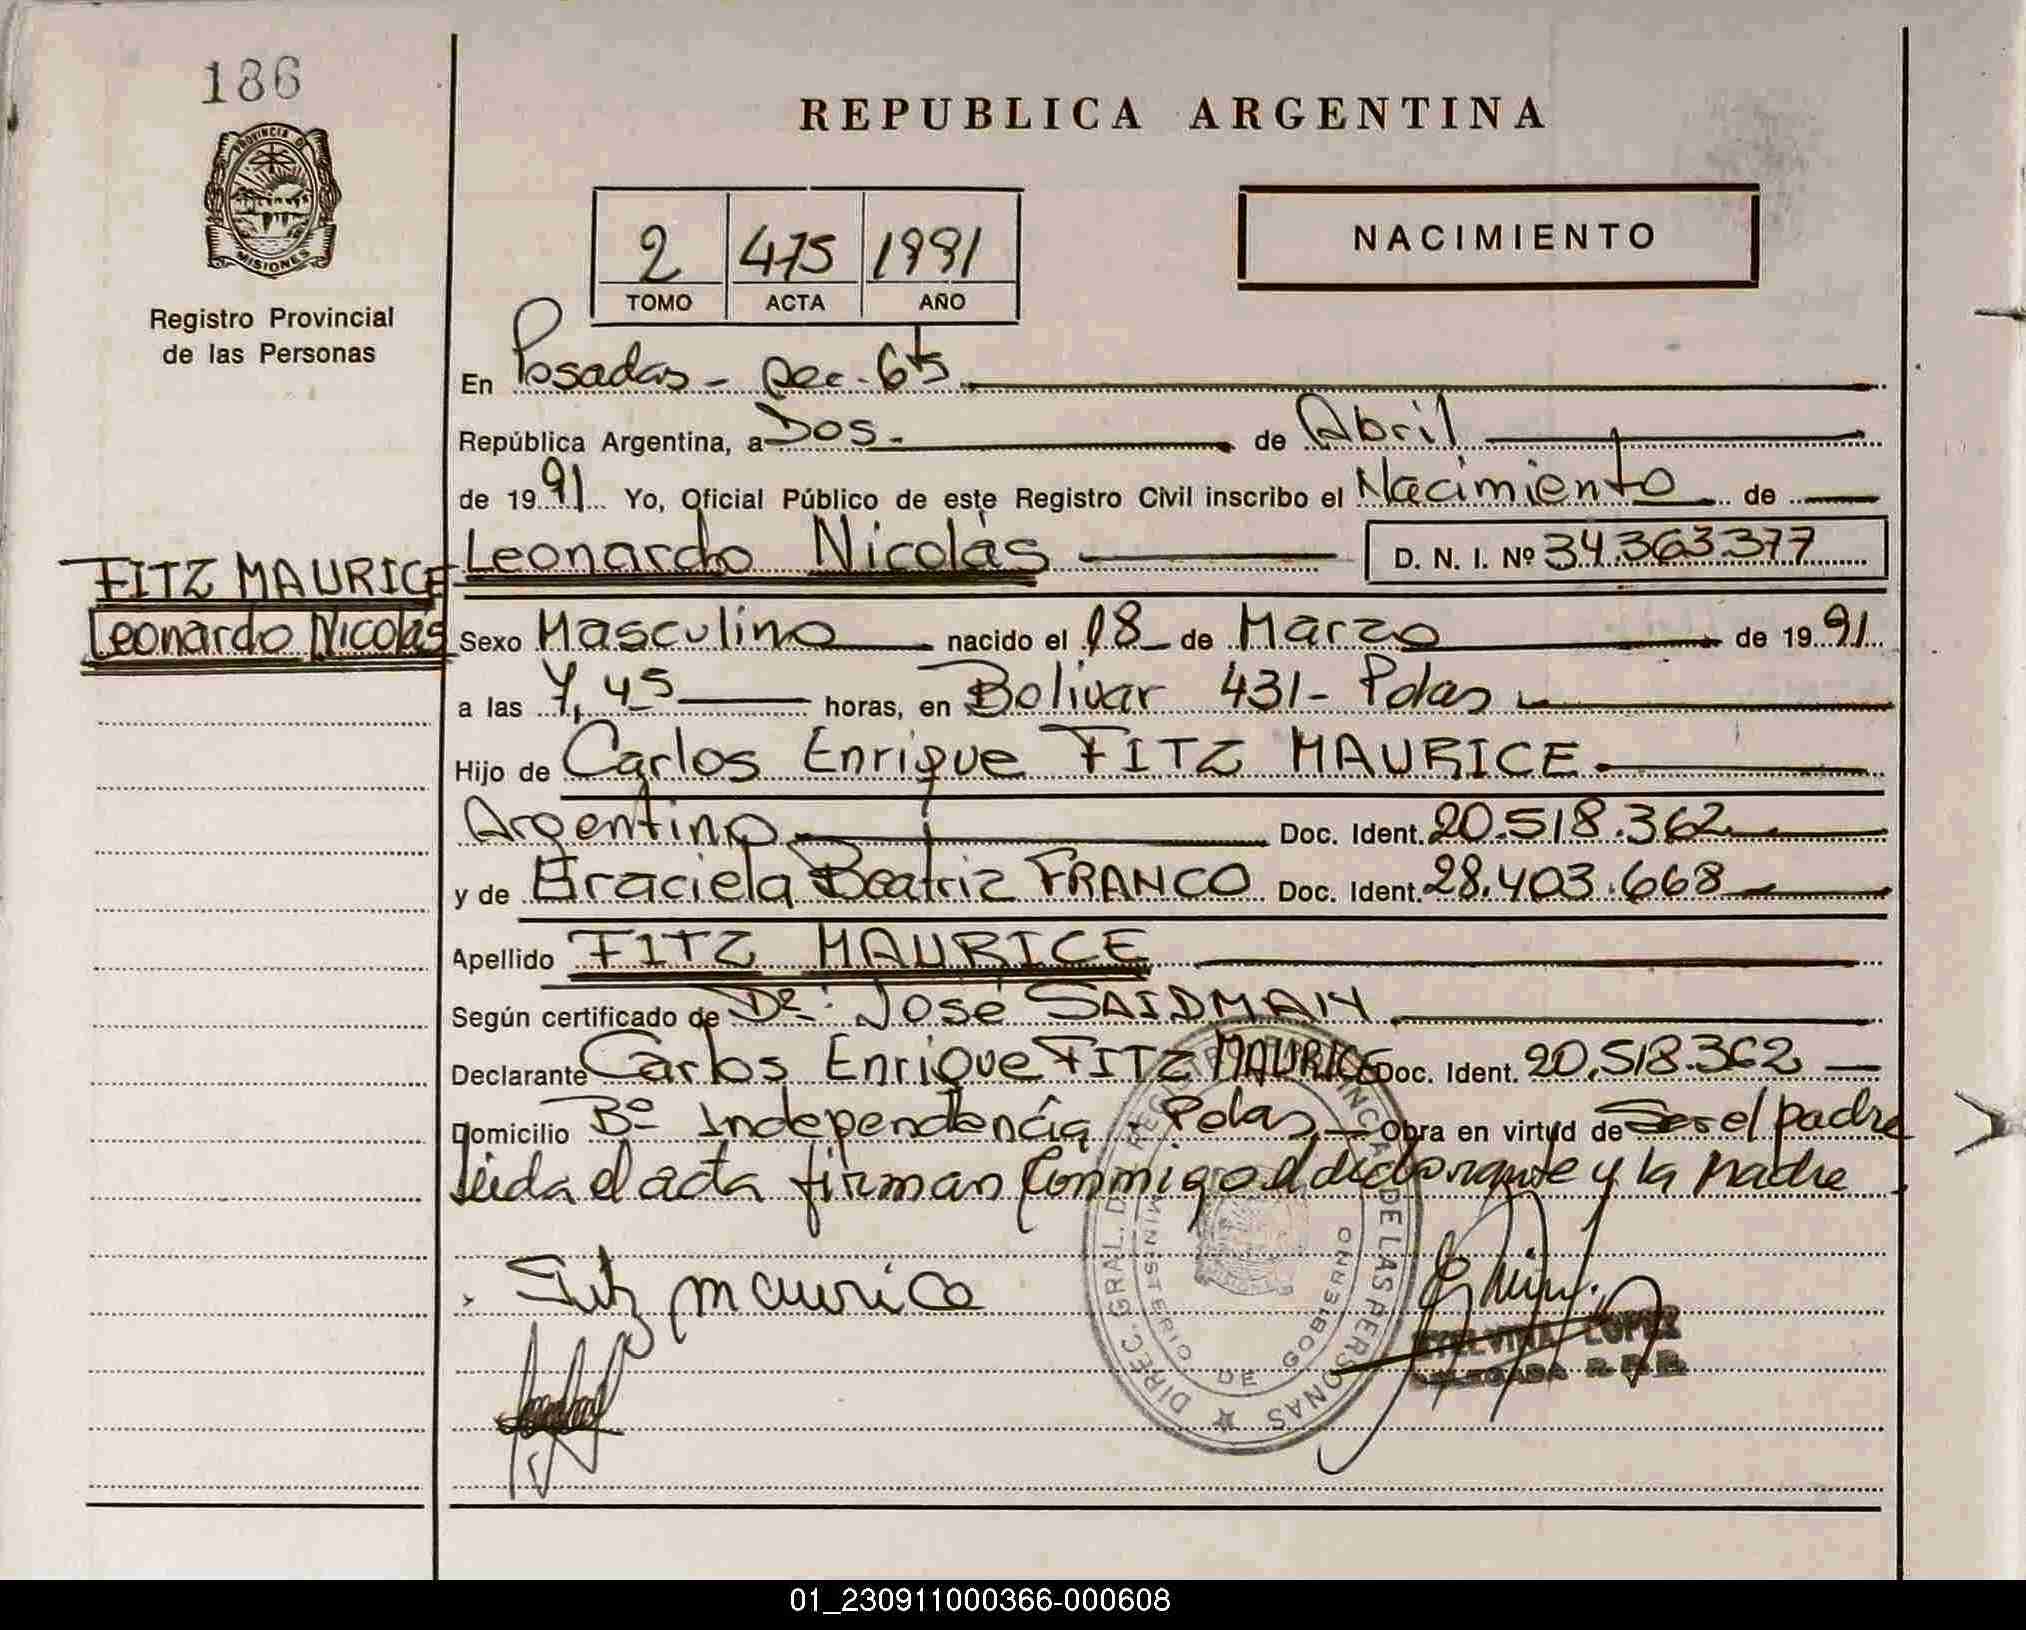 186
PROVINCIA DE
MISIONES
Registro Provincial
de las Personas
FITZ MAURICE
Leonardo Nicolás
REPUBLICA ARGENTINA
NACIMIENTO
2 475 1991
TOMO ACTA AÑO
En Posadas - Sec. 6ta
República Argentina, a Dos.- de Abril
de 1991 Yo, Oficial Público de este Registro Civil inscribo el Nacimiento de
Leonardo Nicolás D. N. I. Nº 34.363.377
Sexo Masculino nacido el 18 de Marzo de 1991
a las 7,45 horas, en Bolivar 431- Pdas
Hijo de Carlos Enrique FITZ MAURICE
Argentino Doc. Ident. 20.518.362
y de Graciela Beatriz FRANCO Doc. Ident. 28.403.668
Apellido FITZ MAURICE
Según certificado de Dr: José SAIDMAN
Declarante Carlos Enrique FITZ MAURICE Doc. Ident. 20.518.362
Domicilio Bº Independencia - Pdas Obra en virtud de Ser el padre
leida el acta firman conmigo el declarante y la madre
Fitz maurice
DIREC. GRAL. DEL REGISTRO PROVINCIAL DE LAS PERSONAS
MINISTERIO DE GOBIERNO
LOPEZ
DELEGADA R.P.P.
01_230911000366-000608